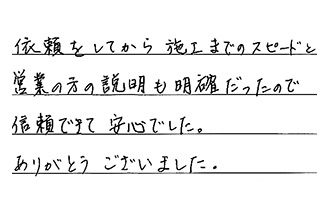 依頼をしてから 施工までのスピードと
営業の方の説明も明確だったので
信頼できて 安心でした。
ありがとう ございました。